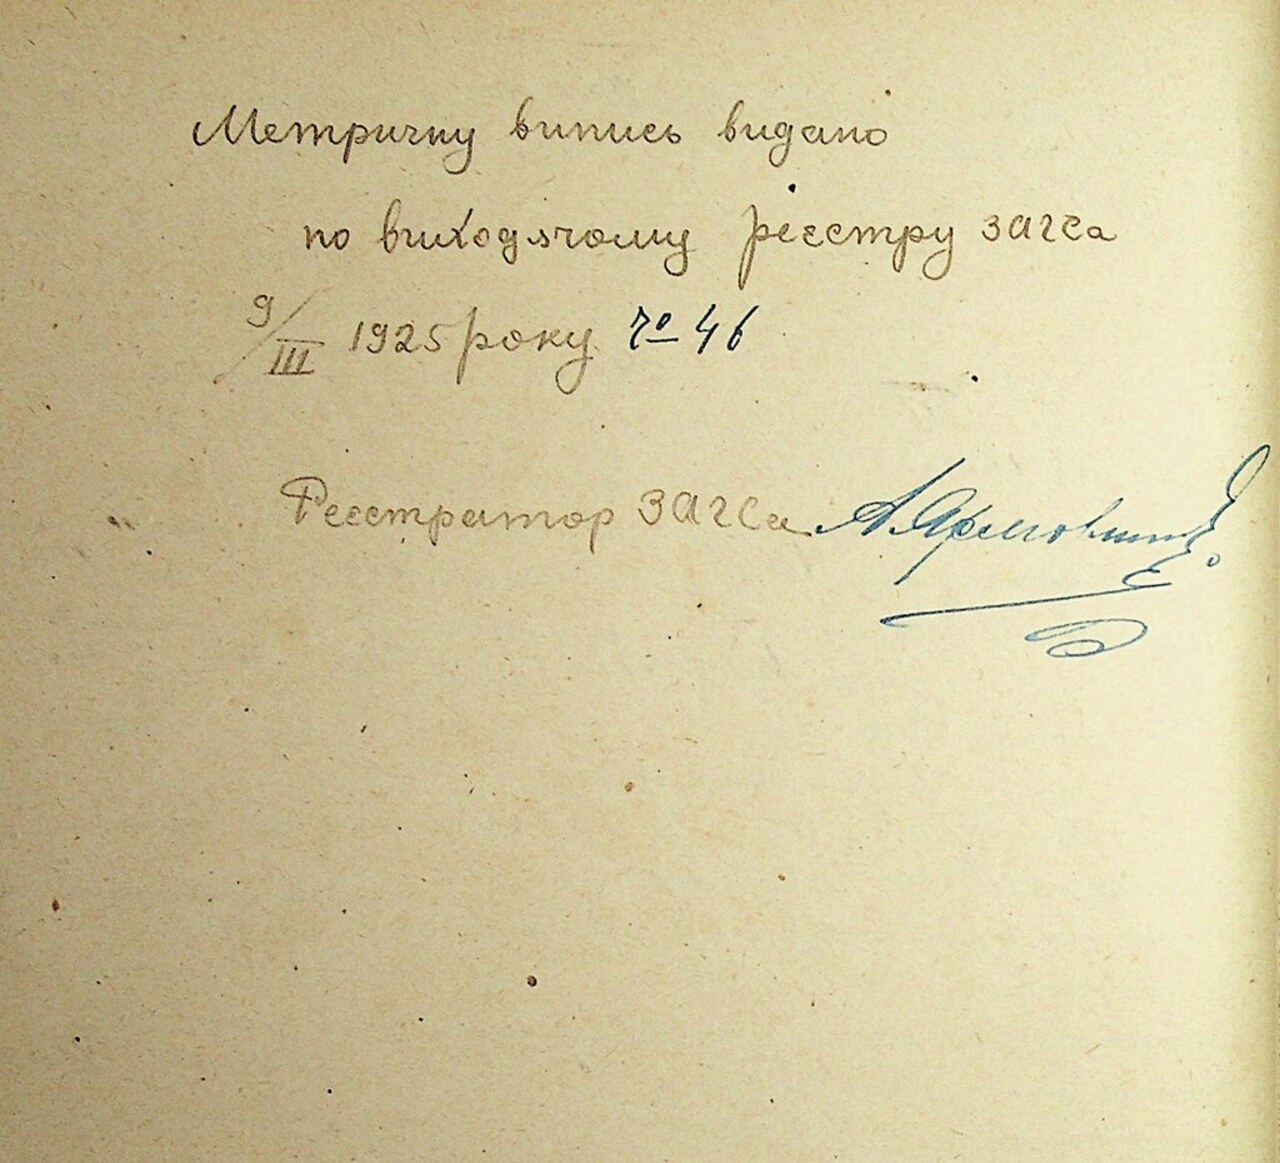 Метричну випись видано
по виходячому реєстру загса
9/III 1925 року № 46
Реєстратор загса А.